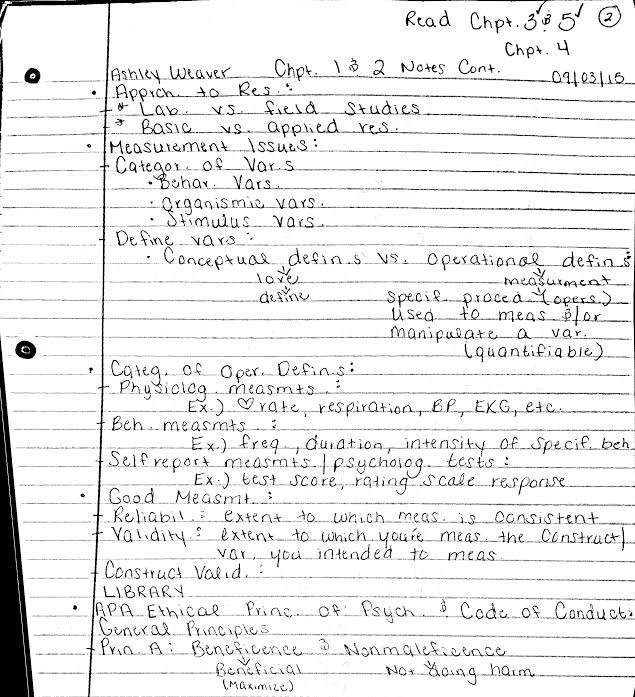 Read Chpt. 3 & 5 ②
Chpt. 4
Ashley Weaver Chpt. 1 & 2 Notes Cont. 09/03/15
• Apprch to Res.:
* Lab. vs. field Studies
* Basic vs. applied res.
• Measurement Issues:
- Categor. of Var.s
• Behav. Vars.
• Organismic vars.
• Stimulus vars.
- Define vars:
• Conceptual defin.s vs. operational defin.s
love measurment
define specif. proced. (opers.)
used to meas. &/or
manipulate a var.
(quantifiable)
• Categ. of Oper. Defin.s:
- Physiolog. measmts.:
Ex.) ♡ rate, respiration, BP, EKG, etc.
- Beh. measmts.:
Ex.) freq., duration, intensity of specif. beh.
- Self report measmts./psycholog. tests:
Ex.) test score, rating scale response
• Good Measmt.:
- Reliabil.: extent to which meas. is consistent
- Validity: extent to which you're meas. the construct/
var. you intended to meas.
- Construct Valid.:
LIBRARY
• APA Ethical Princ. of Psych. & Code of Conduct:
General Principles
- Prin A: Beneficence & Nonmaleficence
Beneficial Not doing harm
(Maximize)